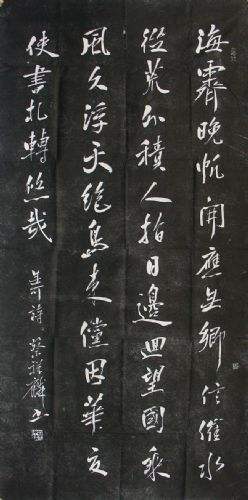 海霽晚帆開應無鄉信催水
從荒外積人指日邊迴望國乘
風久浮天絕島來儻因華夏
使書札轉悠哉
詩 蔡祥麟书